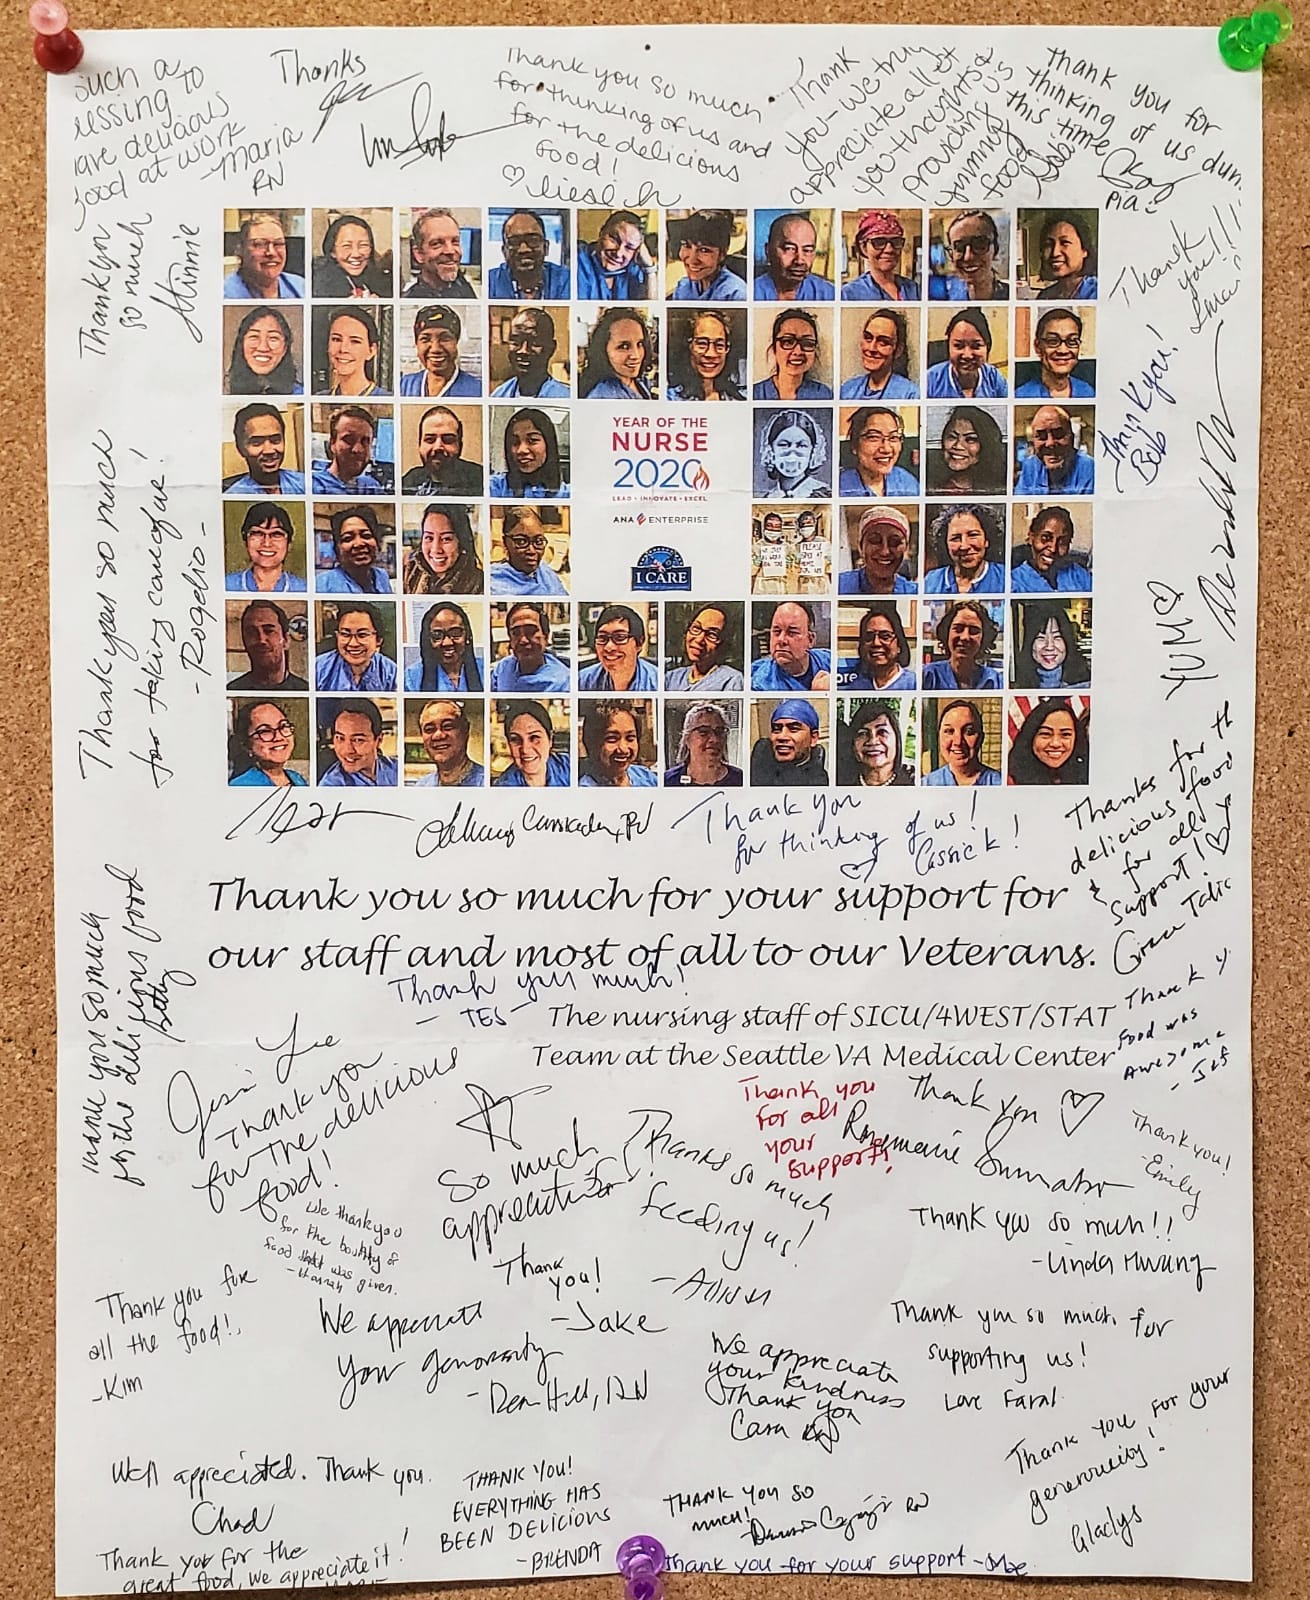 such a
to
delicious
food at work
-Maria
RN
Thanks
Thank you so much
for thinking of us and
for the delicious
food!
Thank
you - we truly
appreciate all of
you thoughts &
providing us
yummy
food
Thank you for
thinking of us
this time
Pia
Thank you
so much
Minnie
Thank
you!!!
Thank you!
Bob
YEAR OF THE
NURSE
2020
LEAD • INNOVATE • EXCEL
ANA ENTERPRISE
I CARE
Thank you so much
for taking care of us!
- Rogelio -
YUM
Thank you
for thinking of us!
Cassick!
Thanks for th
delicious food
& for all your
support!
Grace
Thank you so much for your support for
our staff and most of all to our Veterans.
Thank you much!
- TES -
The nursing staff of SICU/4WEST/STAT
Team at the Seattle VA Medical Center
Thank you so much
for the delicious food
Betty
Thank y
Food was
Awesome
- Jeff
Lee
Thank you
for the delicious
food!
So much
appreciation!
Thanks so much
feeding us!
- Alison
Thank you
for all
your
support!
Thank you
Rosemarie
Thank you!
-Emily
We thank you
for the bounty of
food that was given.
-Hannah
Thank you so much!!
-Linda Hwang
Thank
you!
-Jake
Thank you for
all the food!
-Kim
We appreciate
your generosity
- Hill, RN
We appreciate
your kindness
Thank you
Cara
Thank you so much for
supporting us!
Love
Thank you for your
generousity!
Gladys
Well appreciated. Thank you.
Chad
THANK YOU!
EVERYTHING HAS
BEEN DELICIOUS
-BRENDA
THANK YOU SO
MUCH!
RN
Thank you for the
great food, we appreciate it!
Thank you for your support -